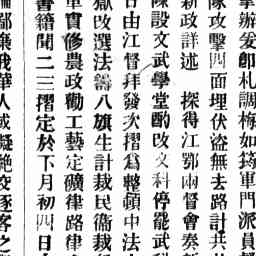 辦爰卽札調梅如錢軍門派員督
隊攻擊四面埋伏盜無去路計共
新政詳述　探得江鄂兩督會奏新
陳設文武學堂酌改文科停罷武科
日由江督拜發次摺爲整頓中法
獄改選法籌八旗生計裁民衞裁
軍實修農政勸工藝定礦律路律
書籍聞二三摺定於下月初四日
鄙棄我華人或疑絕交逐客之